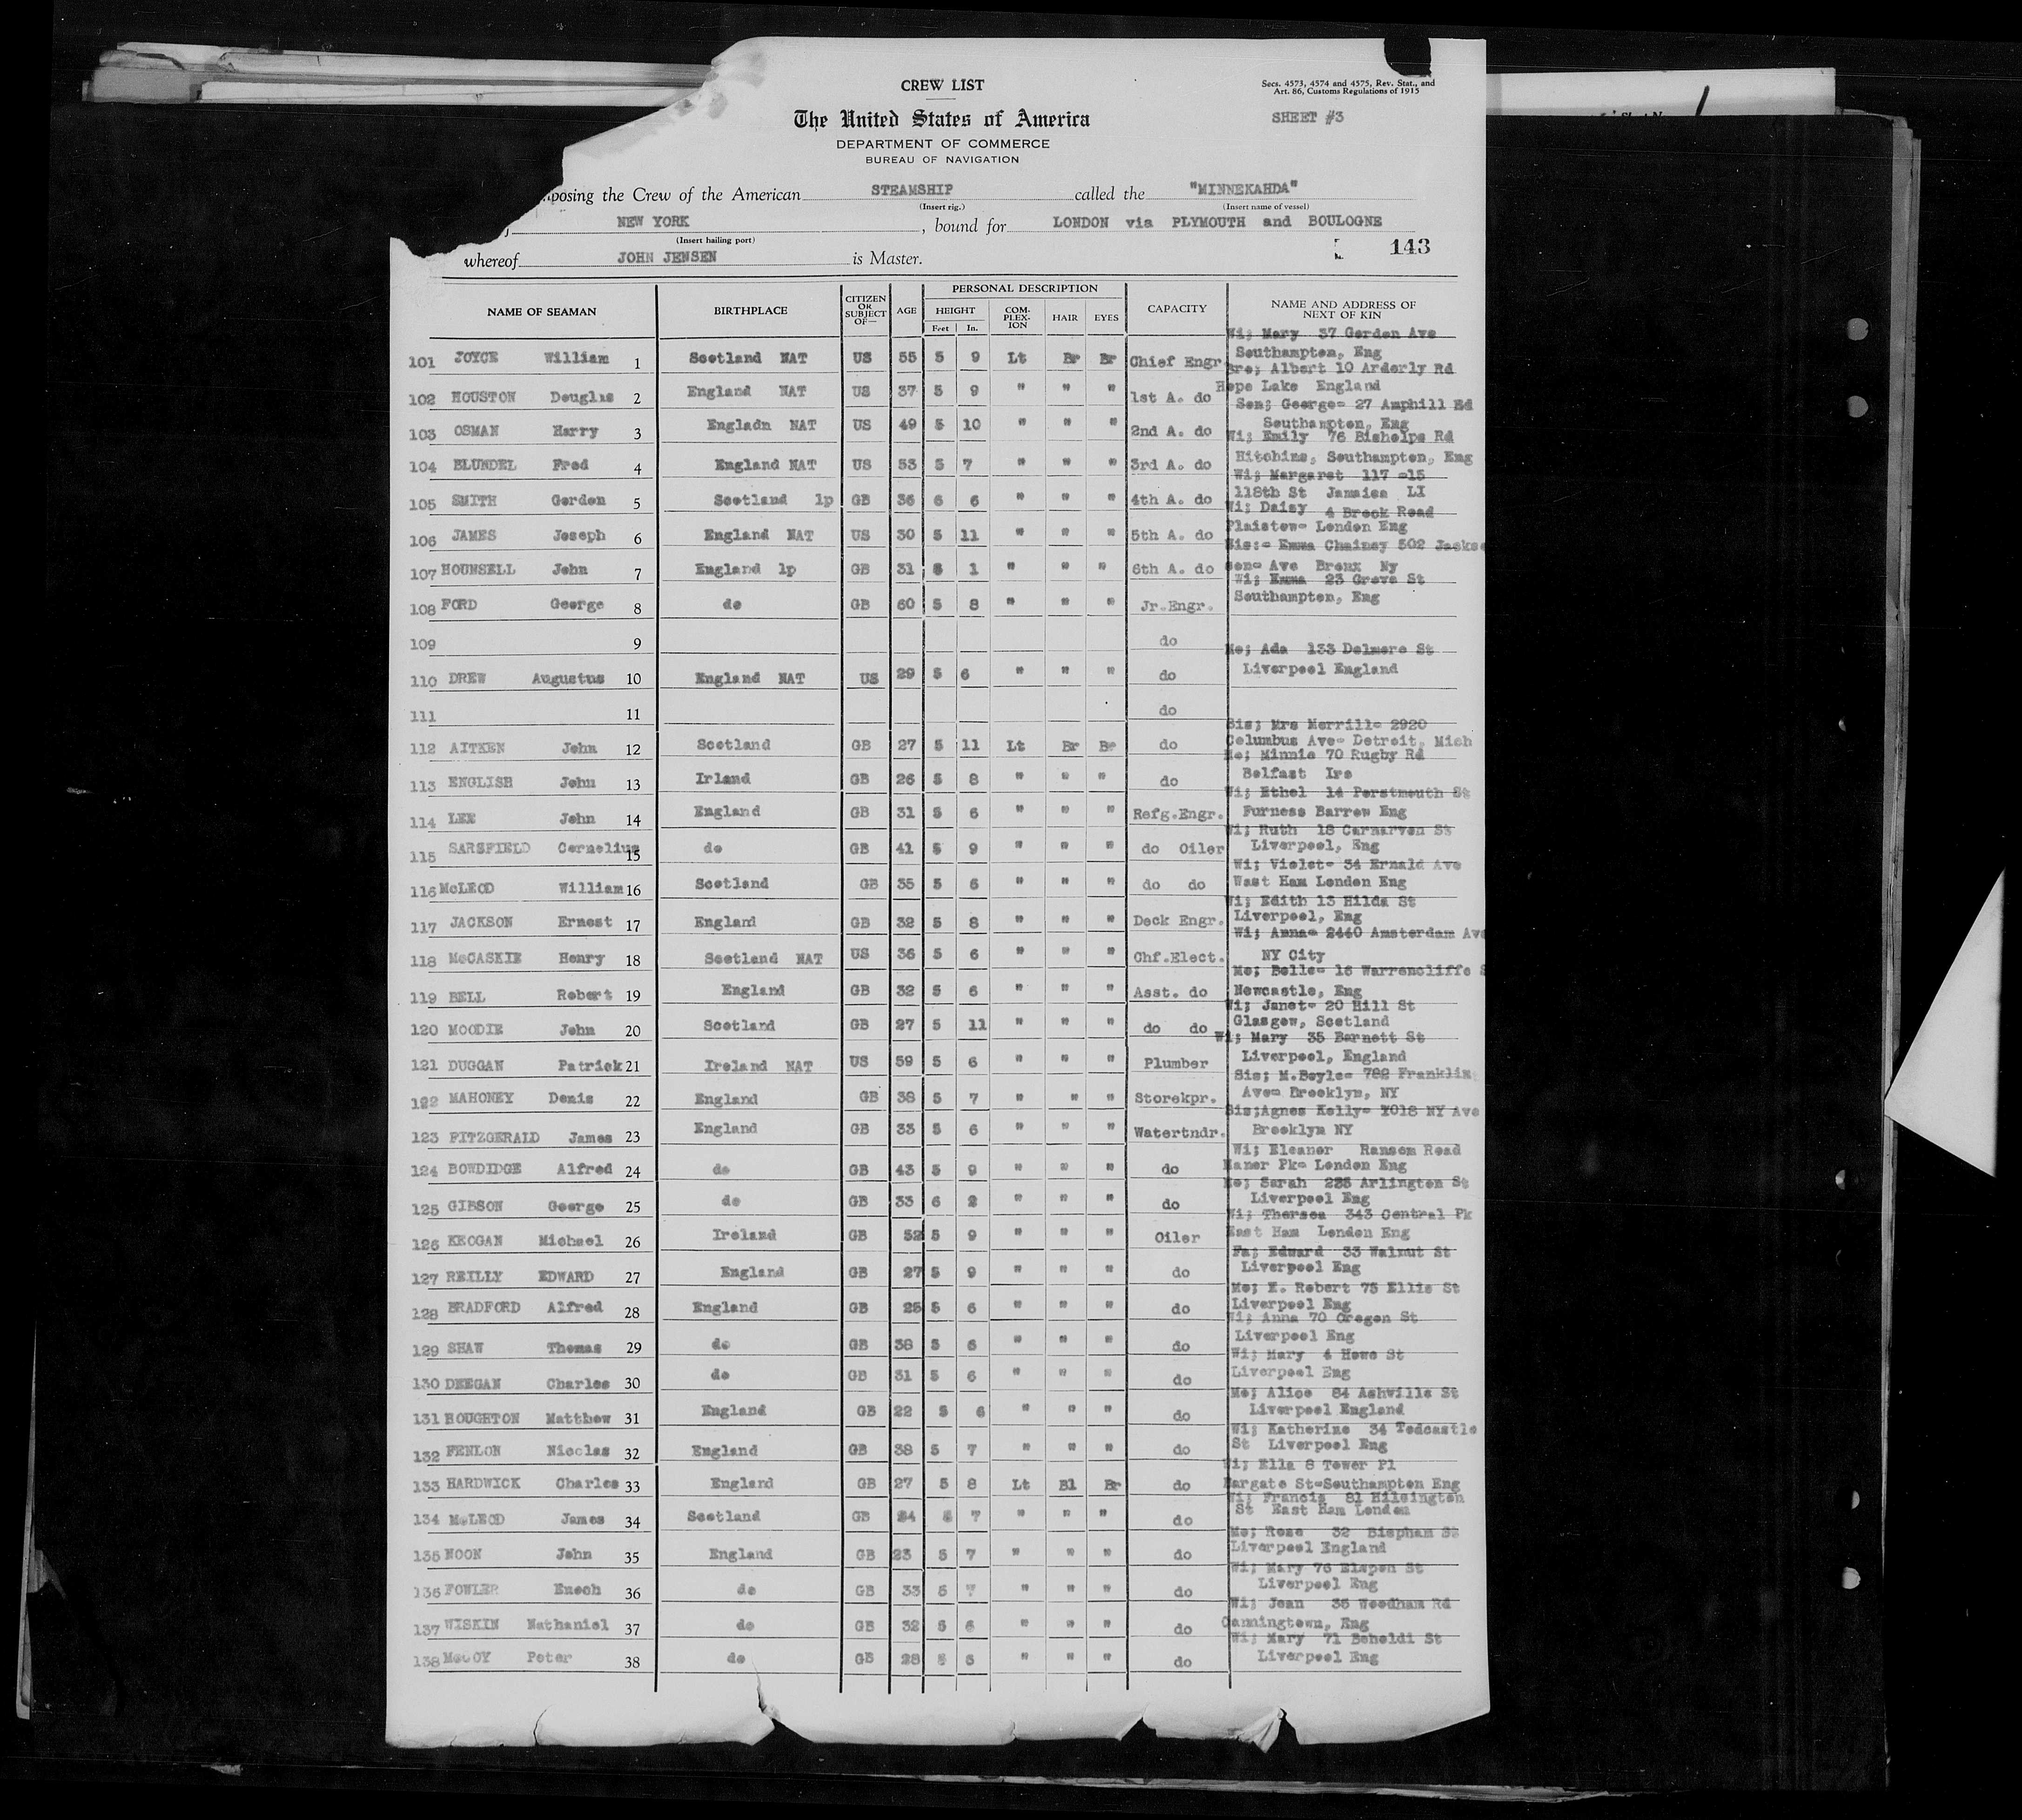 CREW LIST
Secs. 4573, 4574 and 4575, Rev. Stat., and
Art. 86, Customs Regulations of 1915
The United States of America
SHEET #3
DEPARTMENT OF COMMERCE
BUREAU OF NAVIGATION
posing the Crew of the American STEAMSHIP called the "MINNEKAHDA"
(Insert rig.) (Insert name of vessel)
NEW YORK , bound for LONDON via PLYMOUTH and BOULOGNE
(Insert hailing port)
143
whereof JOHN JENSEN is Master.
NAME OF SEAMAN BIRTHPLACE CITIZEN OR SUBJECT OF— AGE PERSONAL DESCRIPTION CAPACITY NAME AND ADDRESS OF NEXT OF KIN
HEIGHT COM-PLEX-ION HAIR EYES
Feet In.
Wi; Mary 37 Gordon Ave
101 JOYCE William 1 Scotland NAT US 55 5 9 Lt Br Br Chief Engr Southampton, Eng
Bro; Albert 10 Arderly Rd
102 HOUSTON Douglas 2 England NAT US 37 5 9 " " " 1st A. do Hope Lake England
Son; George= 27 Amphill Rd
103 OSMAN Harry 3 Engladn NAT US 49 5 10 " " " 2nd A. do Southampton, Eng
Wi; Emily 76 Bishelps Rd
104 BLUNDEL Fred 4 England NAT US 53 5 7 " " " 3rd A. do Hitchins, Southampton, Eng
Wi; Margaret 117 =15
105 SMITH Gordon 5 Scotland 1p GB 36 6 6 " " " 4th A. do 118th St Jamaica LI
Wi; Daisy 4 Brock Road
106 JAMES Joseph 6 England NAT US 30 5 11 " " " 5th A. do Plaistow= London Eng
Sis:= Emma Chainey 502 Jackso
107 HOUNSELL John 7 England 1p GB 31 6 1 " " " 6th A. do son= Ave Bronx Ny
Wi; Emma 23 Grove St
108 FORD George 8 do GB 60 5 8 " " " Jr.Engr. Southampton, Eng
109 9 do
Mo; Ada 133 Delmore St
110 DREW Augustus 10 England NAT US 29 5 6 " " " do Liverpool England
111 11 do
Sis; Mrs Merrill= 2920
112 AITKEN John 12 Scotland GB 27 5 11 Lt Br Be do Columbus Ave= Detroit, Mich
Mo; Minnie 70 Rugby Rd
113 ENGLISH John 13 Irland GB 26 5 8 " " " do Belfast Ire
Wi; Ethel 14 Porstmouth St
114 LEE John 14 England GB 31 5 6 " " " Refg.Engr. Furness Barrow Eng
Wi; Ruth 18 Carnarvon St
115 SARSFIELD Cornelius 15 do GB 41 5 9 " " " do Oiler Liverpool, Eng
Wi; Violet= 34 Ernald Ave
116 McLEOD William 16 Scotland GB 35 5 6 " " " do do West Ham London Eng
Wi; Edith 13 Hilda St
117 JACKSON Ernest 17 England GB 32 5 8 " " " Deck Engr. Liverpool, Eng
Wi; Anna= 2440 Amsterdam Ave
118 McCASKIE Henry 18 Scotland NAT US 36 5 6 " " " Chf.Elect. NY City
Mo; Belle= 16 Warrencliffe S
119 BELL Robert 19 England GB 32 5 6 " " " Asst. do Newcastle, Eng
Wi; Janet= 20 Hill St
120 MOODIE John 20 Scotland GB 27 5 11 " " " do do Glasgow, Scotland
Wi; Mary 35 Barnett St
121 DUGGAN Patrick 21 Ireland NAT US 59 5 6 " " " Plumber Liverpool, England
Sis; M.Boyle= 782 Franklin
122 MAHONEY Denis 22 England GB 38 5 7 " " " Storekpr. Ave= Brooklyn, NY
Sis;Agnes Kelly= 1018 NY Ave
123 FITZGERALD James 23 England GB 33 5 6 " " " Watertndr. Brooklyn NY
Wi; Eleanor Ransom Road
124 BOWDIDGE Alfred 24 do GB 43 5 9 " " " do Manor Pk= London Eng
Mo; Sarah 285 Arlington St
125 GIBSON George 25 do GB 33 6 2 " " " do Liverpool Eng
Wi; Thersea 343 Central Pk
126 KEOGAN Michael 26 Ireland GB 52 5 9 " " " Oiler East Ham London Eng
Fa; Edward 33 Walnut St
127 REILLY EDWARD 27 England GB 27 5 9 " " " do Liverpool Eng
Mo; E. Robert 75 Ellis St
128 BRADFORD Alfred 28 England GB 25 5 6 " " " do Liverpool Eng
Wi; Anna 70 Oregon St
129 SHAW Thomas 29 do GB 38 5 6 " " " do Liverpool Eng
Wi; Mary 4 Howe St
130 DEEGAN Charles 30 do GB 31 5 6 " " " do Liverpool Eng
Mo; Alice 84 Ashville St
131 HOUGHTON Matthew 31 England GB 22 5 6 " " " do Liverpool England
Wi; Katherine 34 Tedcastle
132 FENLON Nicolas 32 England GB 38 5 7 " " " do St Liverpool Eng
Wi; Ella 8 Tower Pl
133 HARDWICK Charles 33 England GB 27 5 8 Lt Bl Br do Margate St=Southampton Eng
Wi; Francis 81 Hilsington
134 McLEOD James 34 Scotland GB 24 5 7 " " " do St East Ham London
Mo; Rose 32 Bispham St
135 NOON John 35 England GB 23 5 7 " " " do Liverpool England
Wi; Mary 76 Elspen St
136 FOWLER Enoch 36 do GB 33 5 7 " " " do Liverpool Eng
Wi; Jean 35 Woodham Rd
137 WISKIN Nathaniel 37 do GB 32 5 6 " " " do Canningtown, Eng
Wi; Mary 71 Beholdi St
138 McCOY Peter 38 do GB 28 5 5 " " " do Liverpool Eng